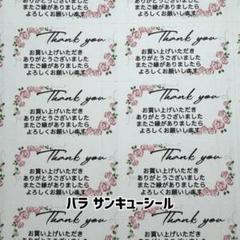 Thank you
お買い上げいただき
ありがとうございました
またご縁がありましたら
よろしくお願いします
Thank you
お買い上げいただき
ありがとうございました
またご縁がありましたら
よろしくお願いします
Thank you
お買い上げいただき
ありがとうございました
またご縁がありましたら
よろしくお願いします
Thank you
お買い上げいただき
ありがとうございました
またご縁がありましたら
よろしくお願いします
Thank you
お買い上げいただき
ありがとうございました
またご縁がありましたら
よろしくお願いします
Thank you
お買い上げいただき
ありがとうございました
またご縁がありましたら
よろしくお願いします
Thank you
Thank you
バラ サンキューシール
お買い上げいただき
ありがとうございました
またご縁がありましたら
よろしくお願いします
お買い上げいただき
ありがとうございました
またご縁がありましたら
よろしくお願いします
Thank you
Thank you